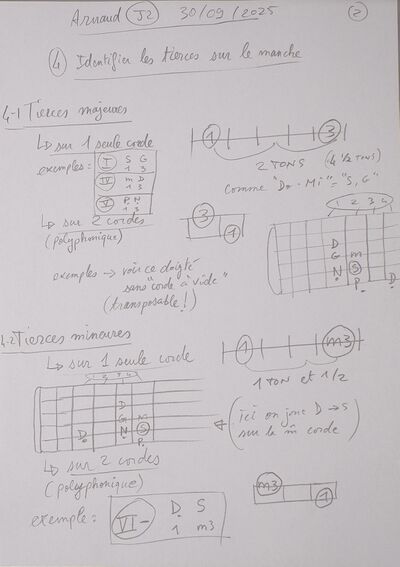 Arnaud J2 30/09/2025 2
4 Identifier les tierces sur le manche
4-1 Tierces majeures
↳ sur 1 seule corde
exemples:
I S G
1 3
IV m D
1 3
V P N
1 3
1 3
2 TONS (4 1/2 TONS)
comme "Do - Mi" = "S, G"
↳ sur 2 cordes
(polyphonique)
3
1
exemples → voir ce doigté
sans "corde à vide"
(transposable!)
1 2 3 4
D
G m
N S
P. D
4-2 Tierces mineures
↳ sur 1 seule corde
1 m3
1 TON et 1/2
D
G m
D N S
P.
(ici on joue D → S
sur la m̂ corde)
↳ sur 2 cordes
(polyphonique)
m3
1
exemple:
VI- D S
1 m3